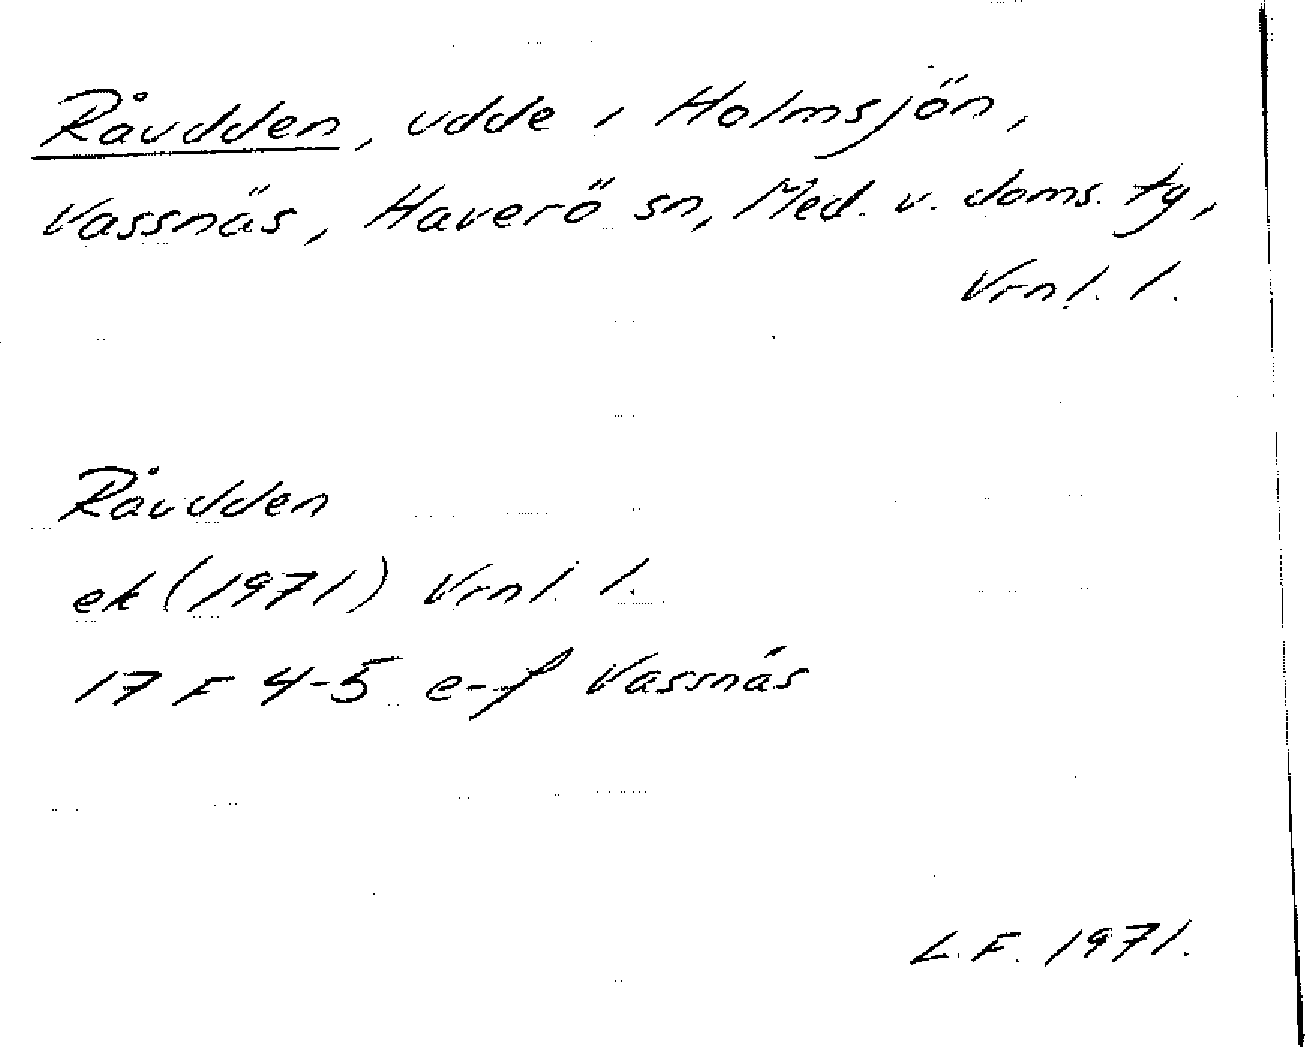 Råudden, udde i Holmsjön,
Vassnäs, Haverö sn, Med. v. doms. tg,
Vrnl. l.
Råudden
ek (1971) Vrnl. l.
17 F 4-5 e-f Vassnäs
L.F. 1971.